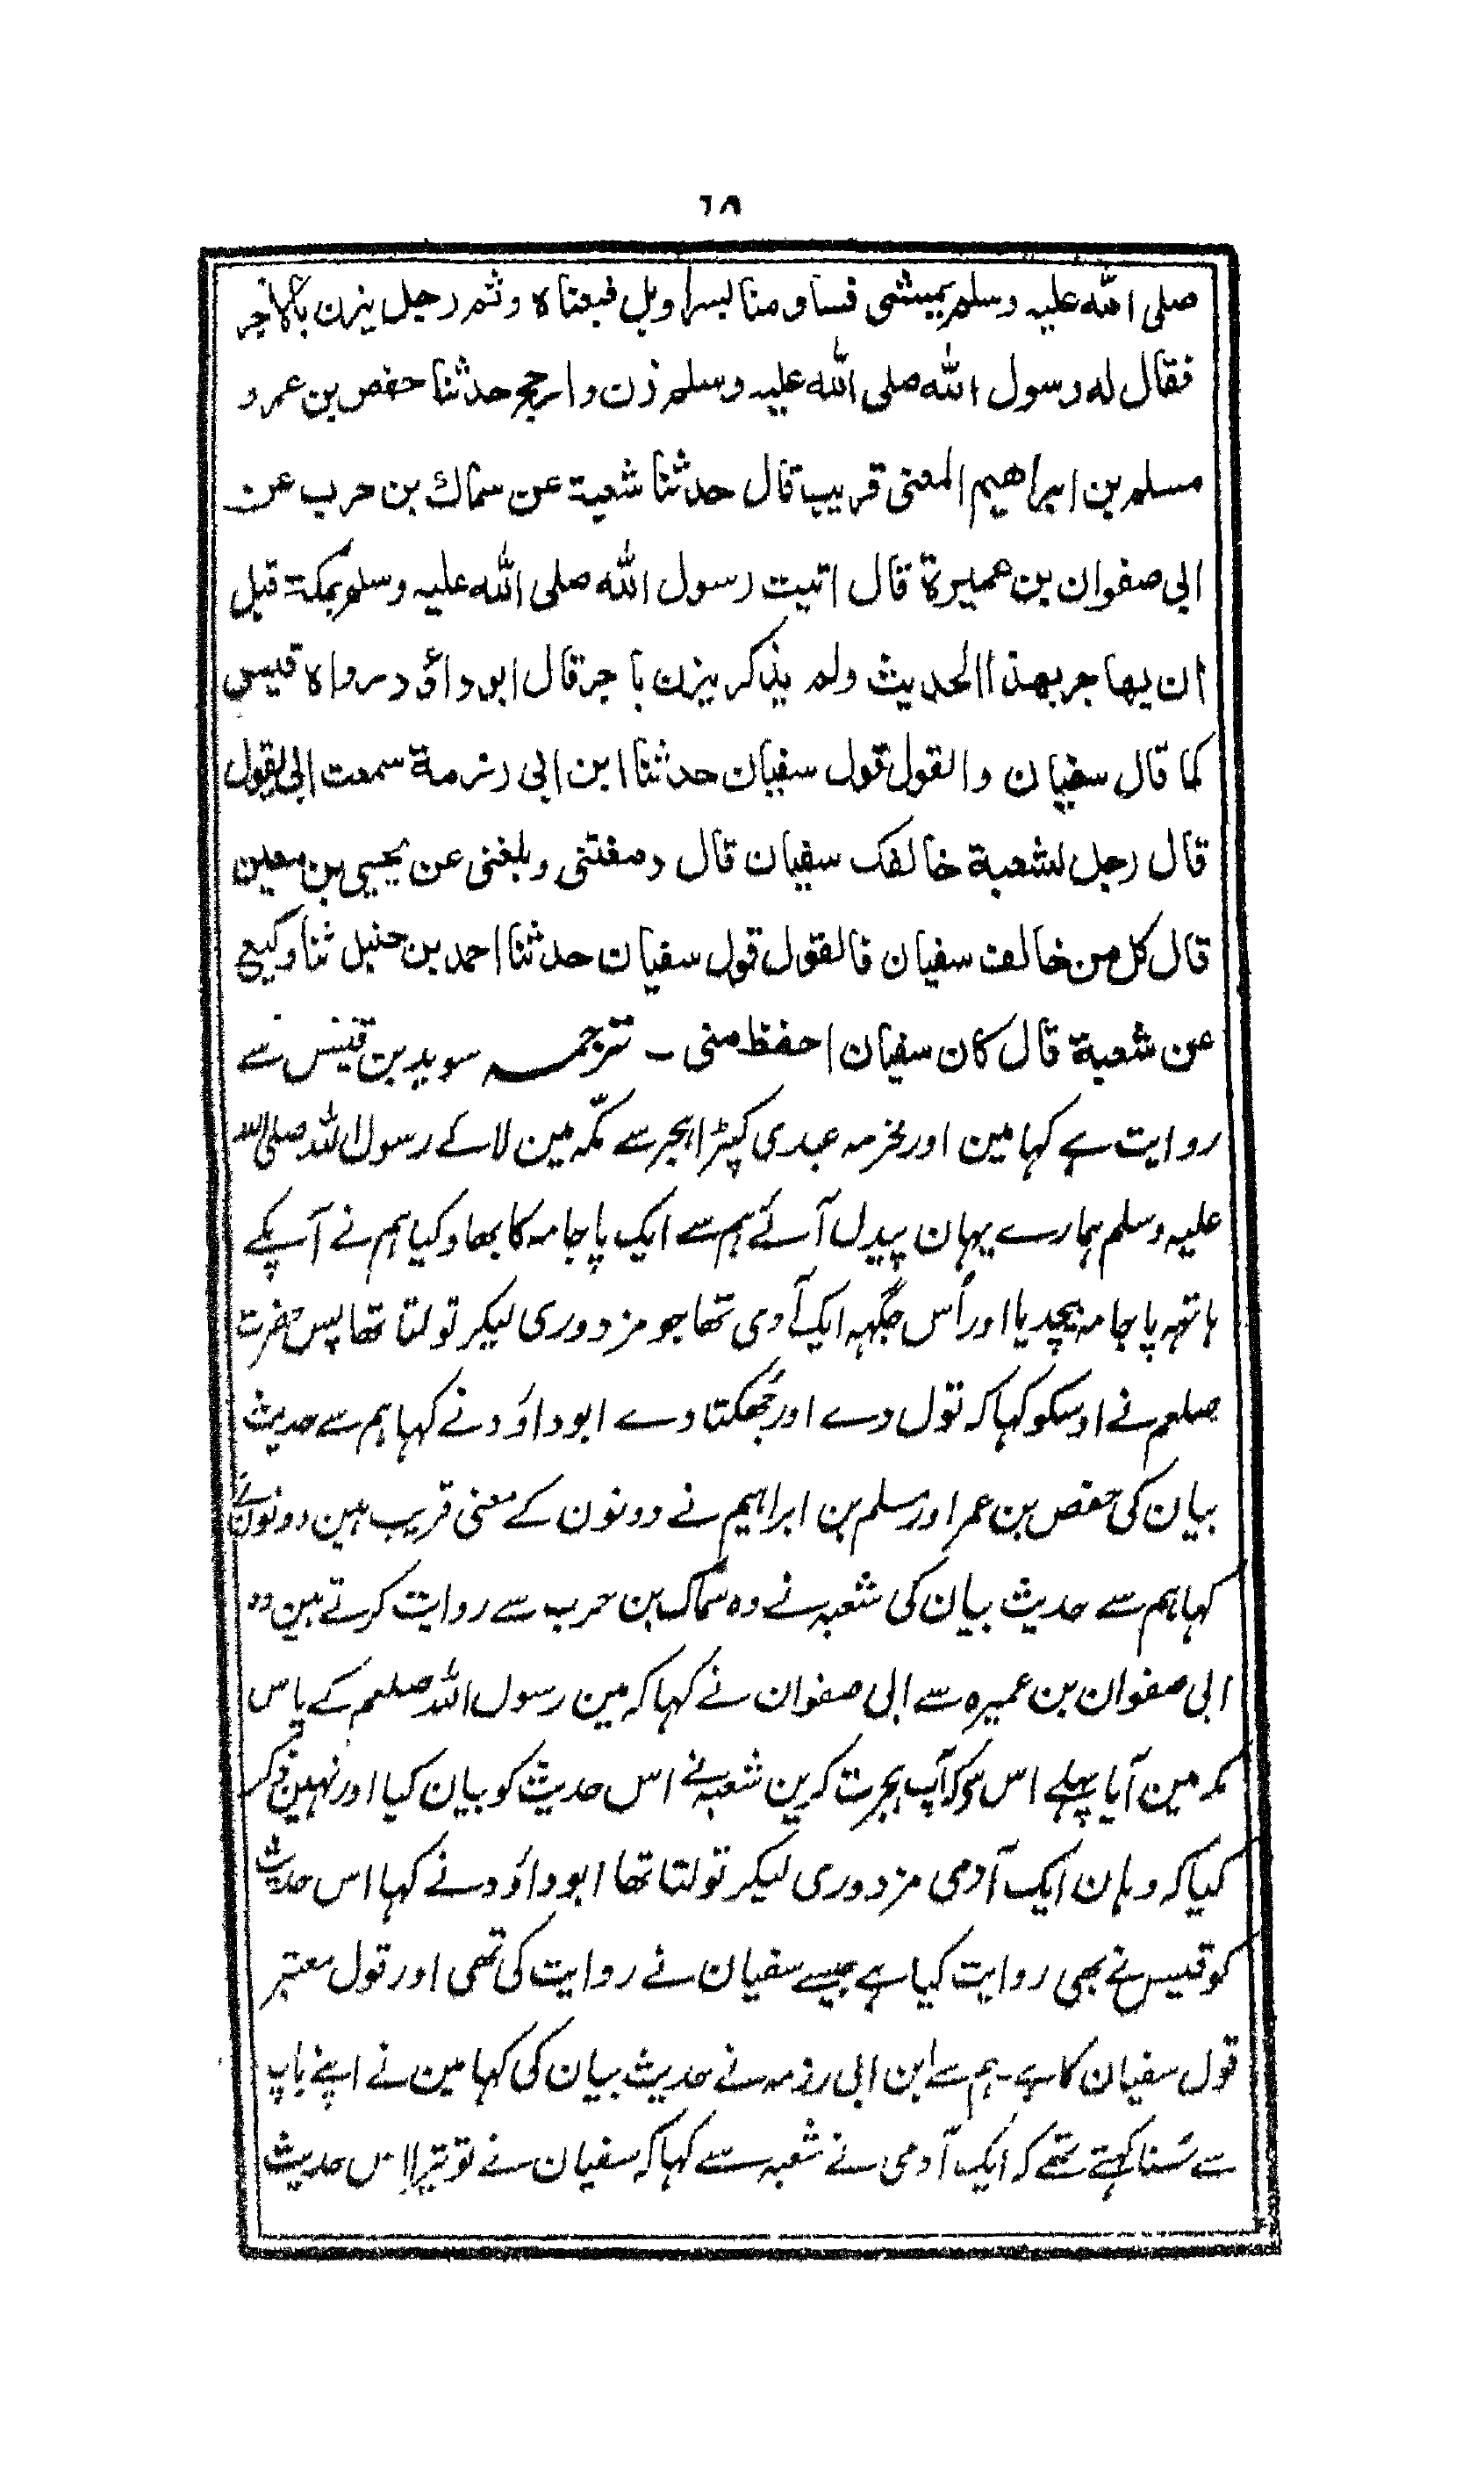 ٦٨
صلى الله عليه وسلم يمشى فساومنا بسراويل فبعناه وثم رجل يزن بالاجر
فقال له رسول الله صلى الله عليه وسلم زن وارجح حدثنا حفص بن عمر و
مسلم بن ابراهيم المعنى قريب قال حدثنا شعبة عن سماك بن حرب عن
ابى صفوان بن عميرة قال اتيت رسول الله صلى الله عليه وسلم بمكة قبل
ان يهاجر بهذا الحديث ولم يذكر يزن باجر قال ابو داؤد رواه قيس
كما قال سفيان والقول قول سفيان حدثنا ابن ابى رزمة سمعت ابى يقول
قال رجل لشعبة خالفك سفيان قال دمغتنى وبلغنى عن يحيى بن معين
قال كل من خالف سفيان فالقول قول سفيان حدثنا احمد بن حنبل ثنا وكيع
عن شعبة قال كان سفيان احفظ منى ۔ ترجمہ سوید بن قیس سے
روایت ہے کہا مین اور مخرمہ عبدی کپڑا ہجر سے مکّہ مین لائے رسول اللہ صلی اللہ
علیہ وسلم ہمارے یہان پیدل آئے ہم سے ایک پاجامہ کا بھاو کیا ہم نے آپکے
ہاتھ پاجامہ بیچدیا اور اُس جگہہ ایک آدمی تھا جو مزدوری لیکر تولتا تھا پس حضرت
صلعم نے اوسکو کہا کہ تول دے اور جُھکتا دے ابو داؤد نے کہا ہم سے حدیث
بیان کی حفص بن عمر اور مسلم بن ابراہیم نے دونون کے معنی قریب ہین دونون نے
کہا ہم سے حدیث بیان کی شعبہ نے وہ سماک بن حرب سے روایت کرتے ہین وہ
ابی صفوان بن عمیرہ سے ابی صفوان نے کہا کہ مین رسول اللہ صلعم کے پاس
مکہ مین آیا پہلے اس سے کہ آپ ہجرت کرین شعبہ نے اس حدیث کو بیان کیا اور نہین ذکر
کیا کہ وہان ایک آدمی مزدوری لیکر تولتا تھا ابو داؤد نے کہا اس حدیث
کو قیس نے بھی روایت کیا ہے جیسے سفیان نے روایت کی تھی اور قول معتبر
قول سفیان کا ہے ۔ ہم سے ابن ابی رزمہ نے حدیث بیان کی کہا مین نے اپنے باپ
سے سُنا کہتے تھے کہ ایک آدمی نے شعبہ سے کہا کہ سفیان نے تو تیرا اس حدیث